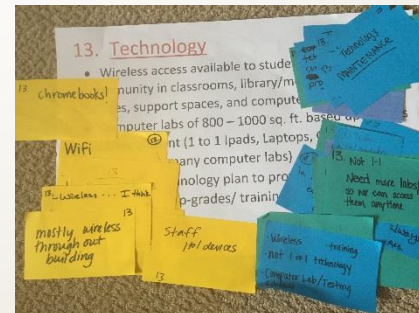 13. Technology
• Wireless access available to stude
munity in classrooms, library/m
es, support spaces, and compute
mputer labs of 800 – 1000 sq. ft. based up
nt (1 to 1 Ipads, Laptops,
many computer labs)
nology plan to pro
p-grades/ training
13
Chromebooks!
WiFi
13
13 - Wireless ... I think
13
mostly wireless
through out
building
Staff
1 to 1 devices
13
Technology
MAINTENANCE
13. Not 1-1
Need more labs
so we can access
them anytime
Wireless training
- not 1 on 1 technology
- Computer Lab/Testing